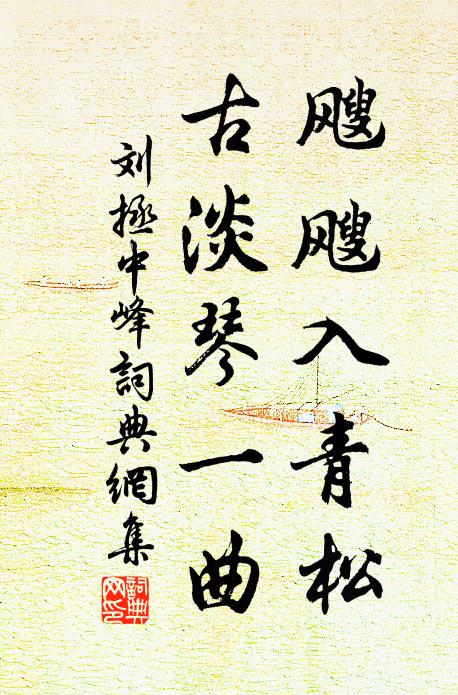 颼颼入青松
古淡琴一曲
刘拯中峰詞典網集
詞典網印